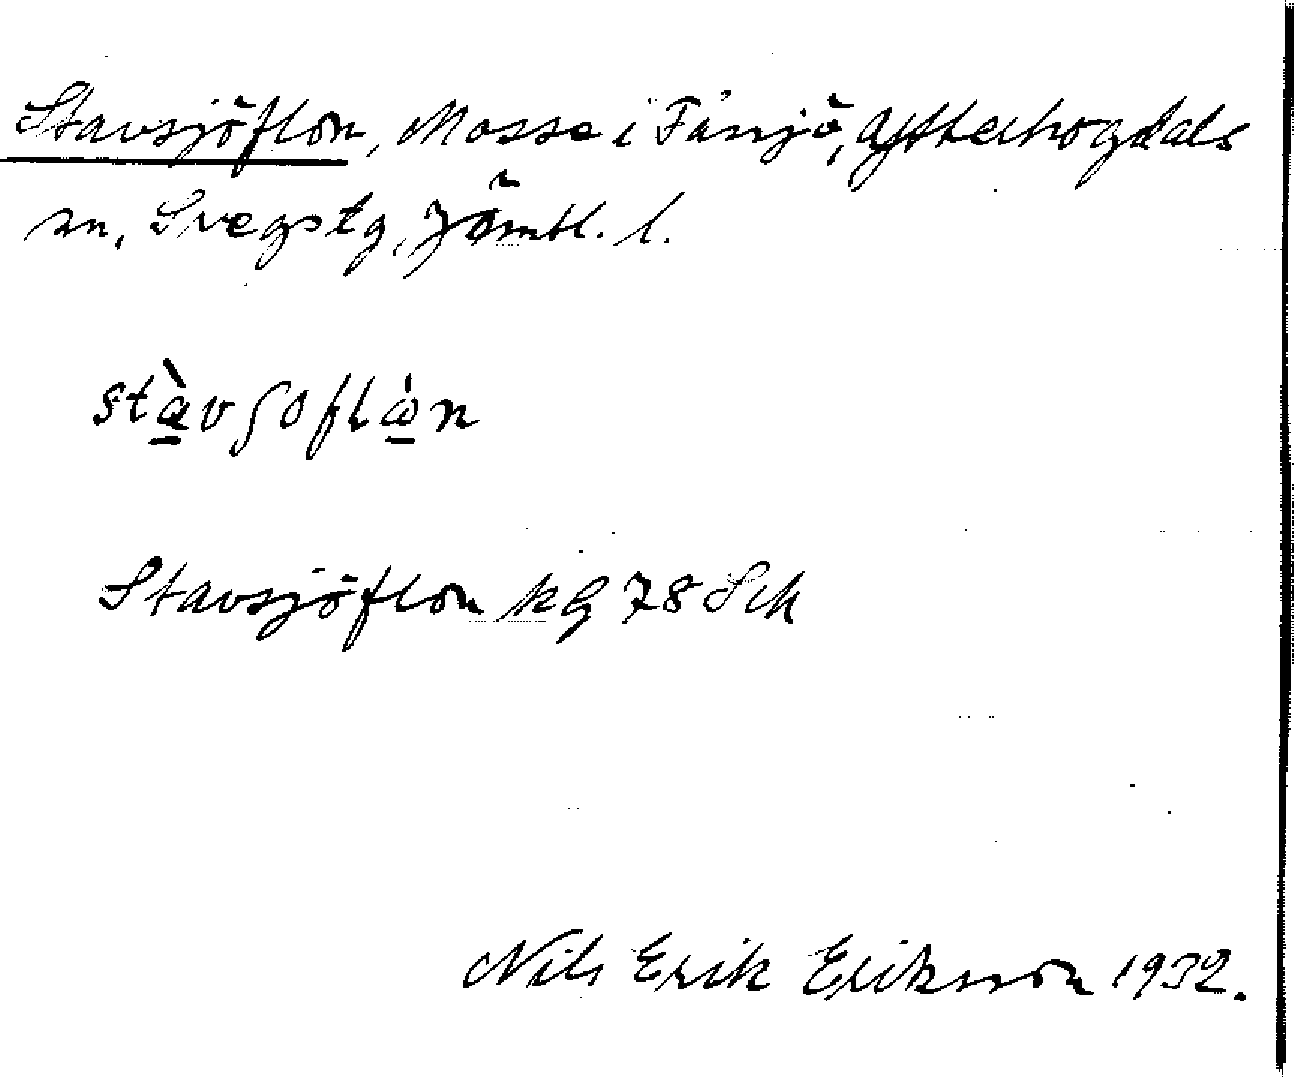 Stavsjöflon, Mosse i Fånsjö, Ytterhogdals
sn, Svegs tg, Jämtl. l.
stàvʃoflòn
Stavsjöflon kg 78 Sch
Nils Erik Eriksson 1932.